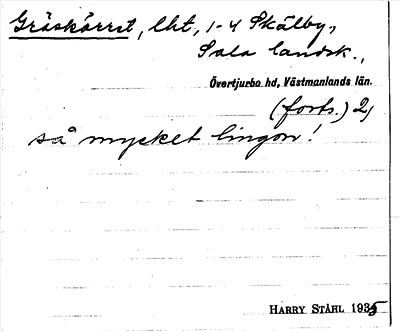 Gråskärret, lht, 1-4 Skälby,
Sala landsk.,
Övertjurbo hd, Västmanlands län.
(forts.) 2,
så mycket lingon!
HARRY STÅHL 1935